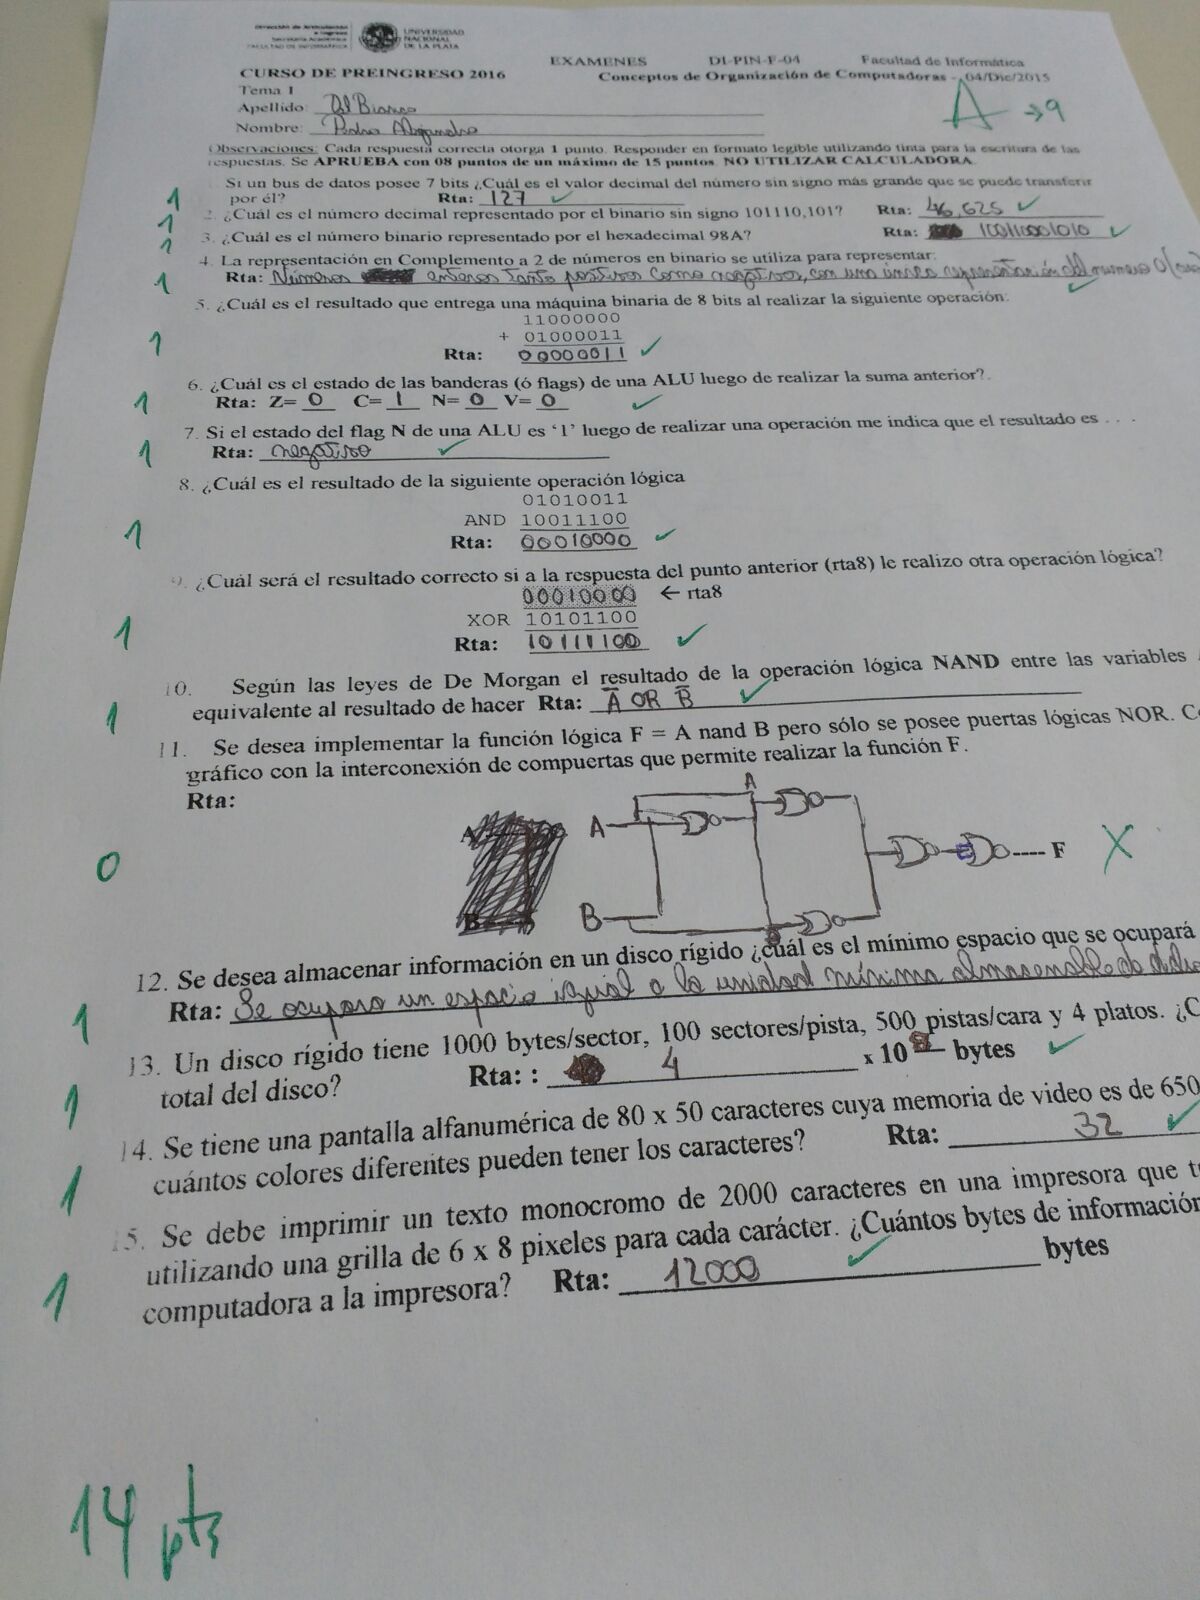 Dirección de Articulación
e Ingreso
Secretaría Académica
FACULTAD DE INFORMÁTICA
UNIVERSIDAD
NACIONAL
DE LA PLATA
EXAMENES DI-PIN-F-04 Facultad de Informática
CURSO DE PREINGRESO 2016 Conceptos de Organización de Computadoras - 04/Dic/2015
Tema 1
A → 9
Apellido: Del Bianco
Nombre: Pedro Alejandro
Observaciones: Cada respuesta correcta otorga 1 punto. Responder en formato legible utilizando tinta para la escritura de las
respuestas. Se APRUEBA con 08 puntos de un máximo de 15 puntos. NO UTILIZAR CALCULADORA.
Si un bus de datos posee 7 bits ¿Cuál es el valor decimal del número sin signo más grande que se puede transferir
1 por él? Rta: 127 ✓
1 2. ¿Cuál es el número decimal representado por el binario sin signo 101110,101? Rta: 46,625 ✓
1 3. ¿Cuál es el número binario representado por el hexadecimal 98A? Rta: 100110001010 ✓
4. La representación en Complemento a 2 de números en binario se utiliza para representar:
1 Rta: Números enteros tanto positivos como negativos, con una única representación del numero 0 ✓
5. ¿Cuál es el resultado que entrega una máquina binaria de 8 bits al realizar la siguiente operación:
11000000
+ 01000011
1 Rta: 00000011 ✓
6. ¿Cuál es el estado de las banderas (ó flags) de una ALU luego de realizar la suma anterior?.
1 Rta: Z= 0 C= 1 N= 0 V= 0 ✓
7. Si el estado del flag N de una ALU es ‘1’ luego de realizar una operación me indica que el resultado es . . .
1 Rta: negativo ✓
8. ¿Cuál es el resultado de la siguiente operación lógica
01010011
AND 10011100
1 Rta: 00010000 ✓
9. ¿Cuál será el resultado correcto si a la respuesta del punto anterior (rta8) le realizo otra operación lógica?
00010000 ← rta8
XOR 10101100
1 Rta: 10111100 ✓
10. Según las leyes de De Morgan el resultado de la operación lógica NAND entre las variables
1 equivalente al resultado de hacer Rta: A̅ OR B̅ ✓
11. Se desea implementar la función lógica F = A nand B pero sólo se posee puertas lógicas NOR.
gráfico con la interconexión de compuertas que permite realizar la función F.
Rta:
A
A
0
F X
B
12. Se desea almacenar información en un disco rígido ¿cuál es el mínimo espacio que se ocupará
1 Rta: Se ocupara un espacio igual a la unidad mínima almacenable de dicho
13. Un disco rígido tiene 1000 bytes/sector, 100 sectores/pista, 500 pistas/cara y 4 platos.
1 total del disco? Rta: : 4 x 10 8 bytes ✓
14. Se tiene una pantalla alfanumérica de 80 x 50 caracteres cuya memoria de video es de 650
1 cuántos colores diferentes pueden tener los caracteres? Rta: 32 ✓
15. Se debe imprimir un texto monocromo de 2000 caracteres en una impresora que
utilizando una grilla de 6 x 8 pixeles para cada carácter. ¿Cuántos bytes de información
1 computadora a la impresora? Rta: 12000 ✓ bytes
14 pts